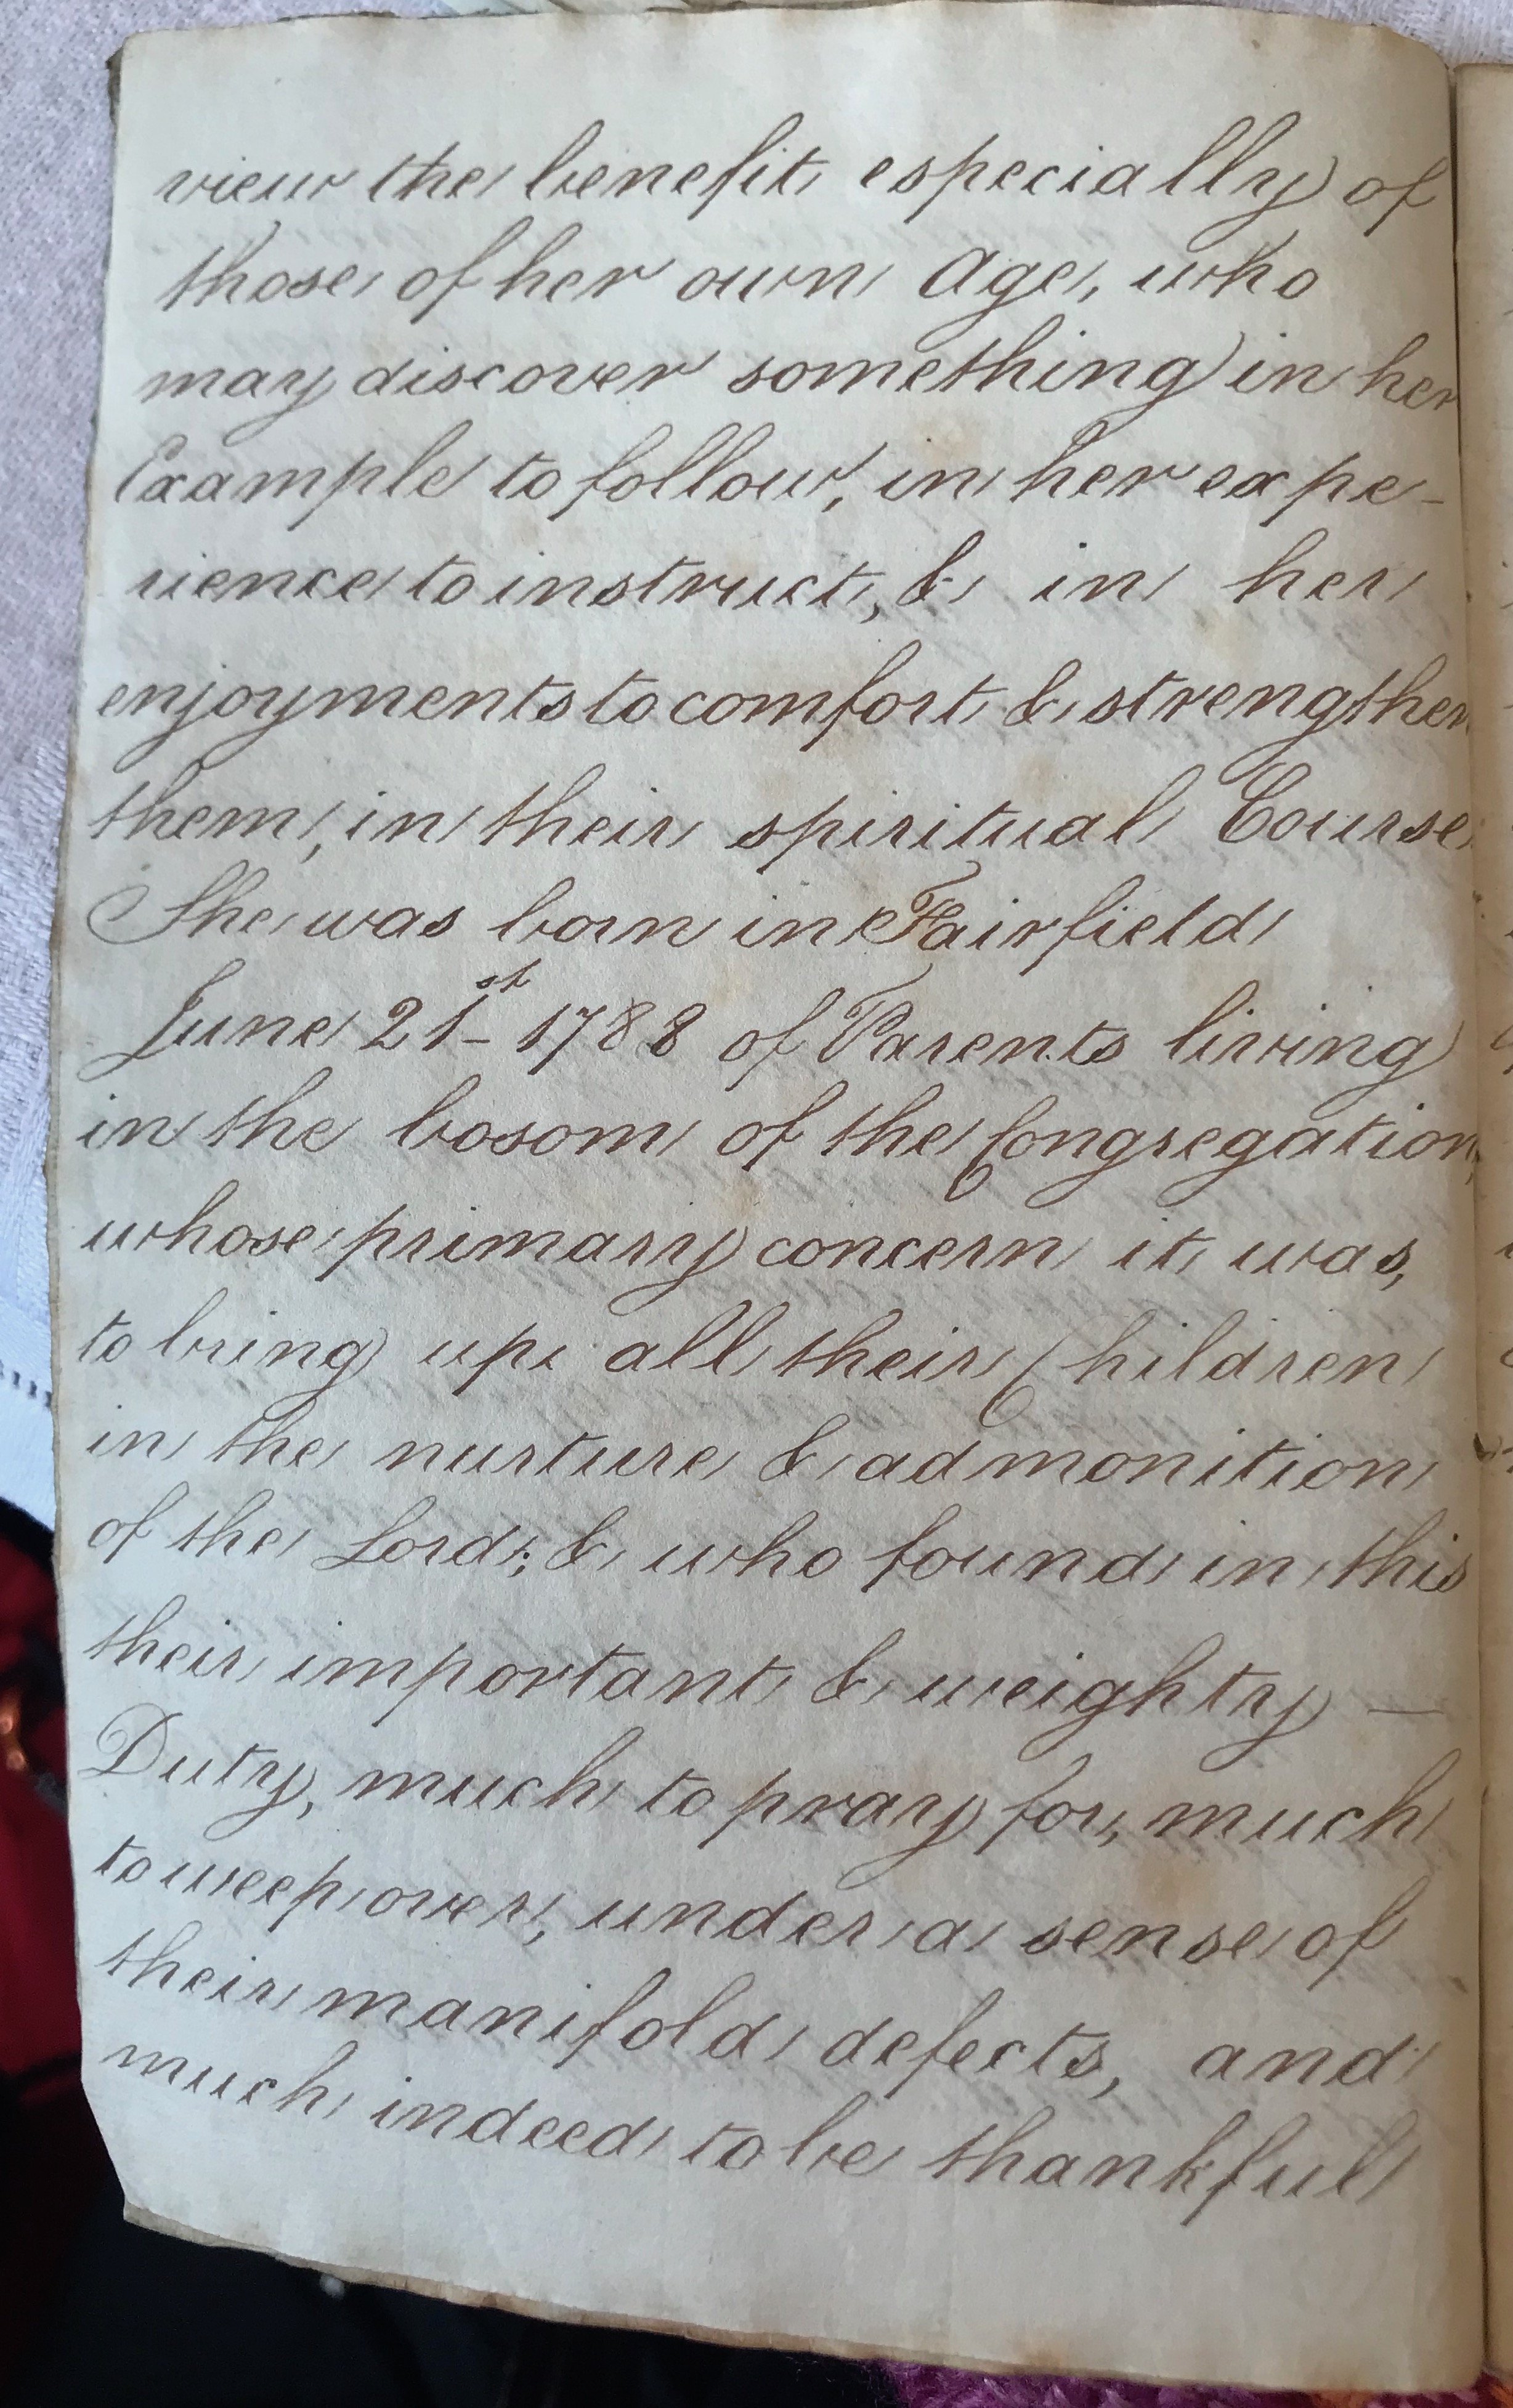 view the benefit especially of
those of her own Age, who
may discover something in her
Example to follow, in her expe-
rience to instruct, & in her
enjoyments to comfort & strengthen
them, in their spiritual Course
She was born in Fairfield
June 21st 1788 of Parents living
in the bosom of the Congregation,
whose primary concern it was,
to bring up all their Children
in the nurture & admonition
of the Lord; & who found in this
their important & weighty —
Duty, much to pray for, much
to weep over, under a sense of
their manifold defects, and
much indeed to be thankful